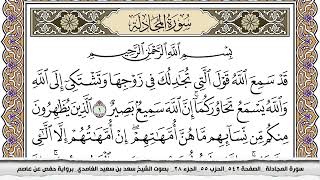 سورة المجادلة
بسم الله الرحمن الرحيم
قَدْ سَمِعَ اللَّهُ قَوْلَ الَّتِي تُجَادِلُكَ فِي زَوْجِهَا وَتَشْتَكِي إِلَى اللَّهِ
وَاللَّهُ يَسْمَعُ تَحَاوُرَكُمَا إِنَّ اللَّهَ سَمِيعٌ بَصِيرٌ ١ الَّذِينَ يُظَاهِرُونَ
مِنكُم مِّن نِّسَائِهِم مَّا هُنَّ أُمَّهَاتِهِمْ إِنْ أُمَّهَاتُهُمْ إِلَّا الَّتِي
سورة المجادلة _الصفحة ٥٤٢ _الحزب ٥٥ _الجزء ٢٨ _ بصوت الشيخ سعد بن سعيد الغامدي برواية حفص عن عاصم